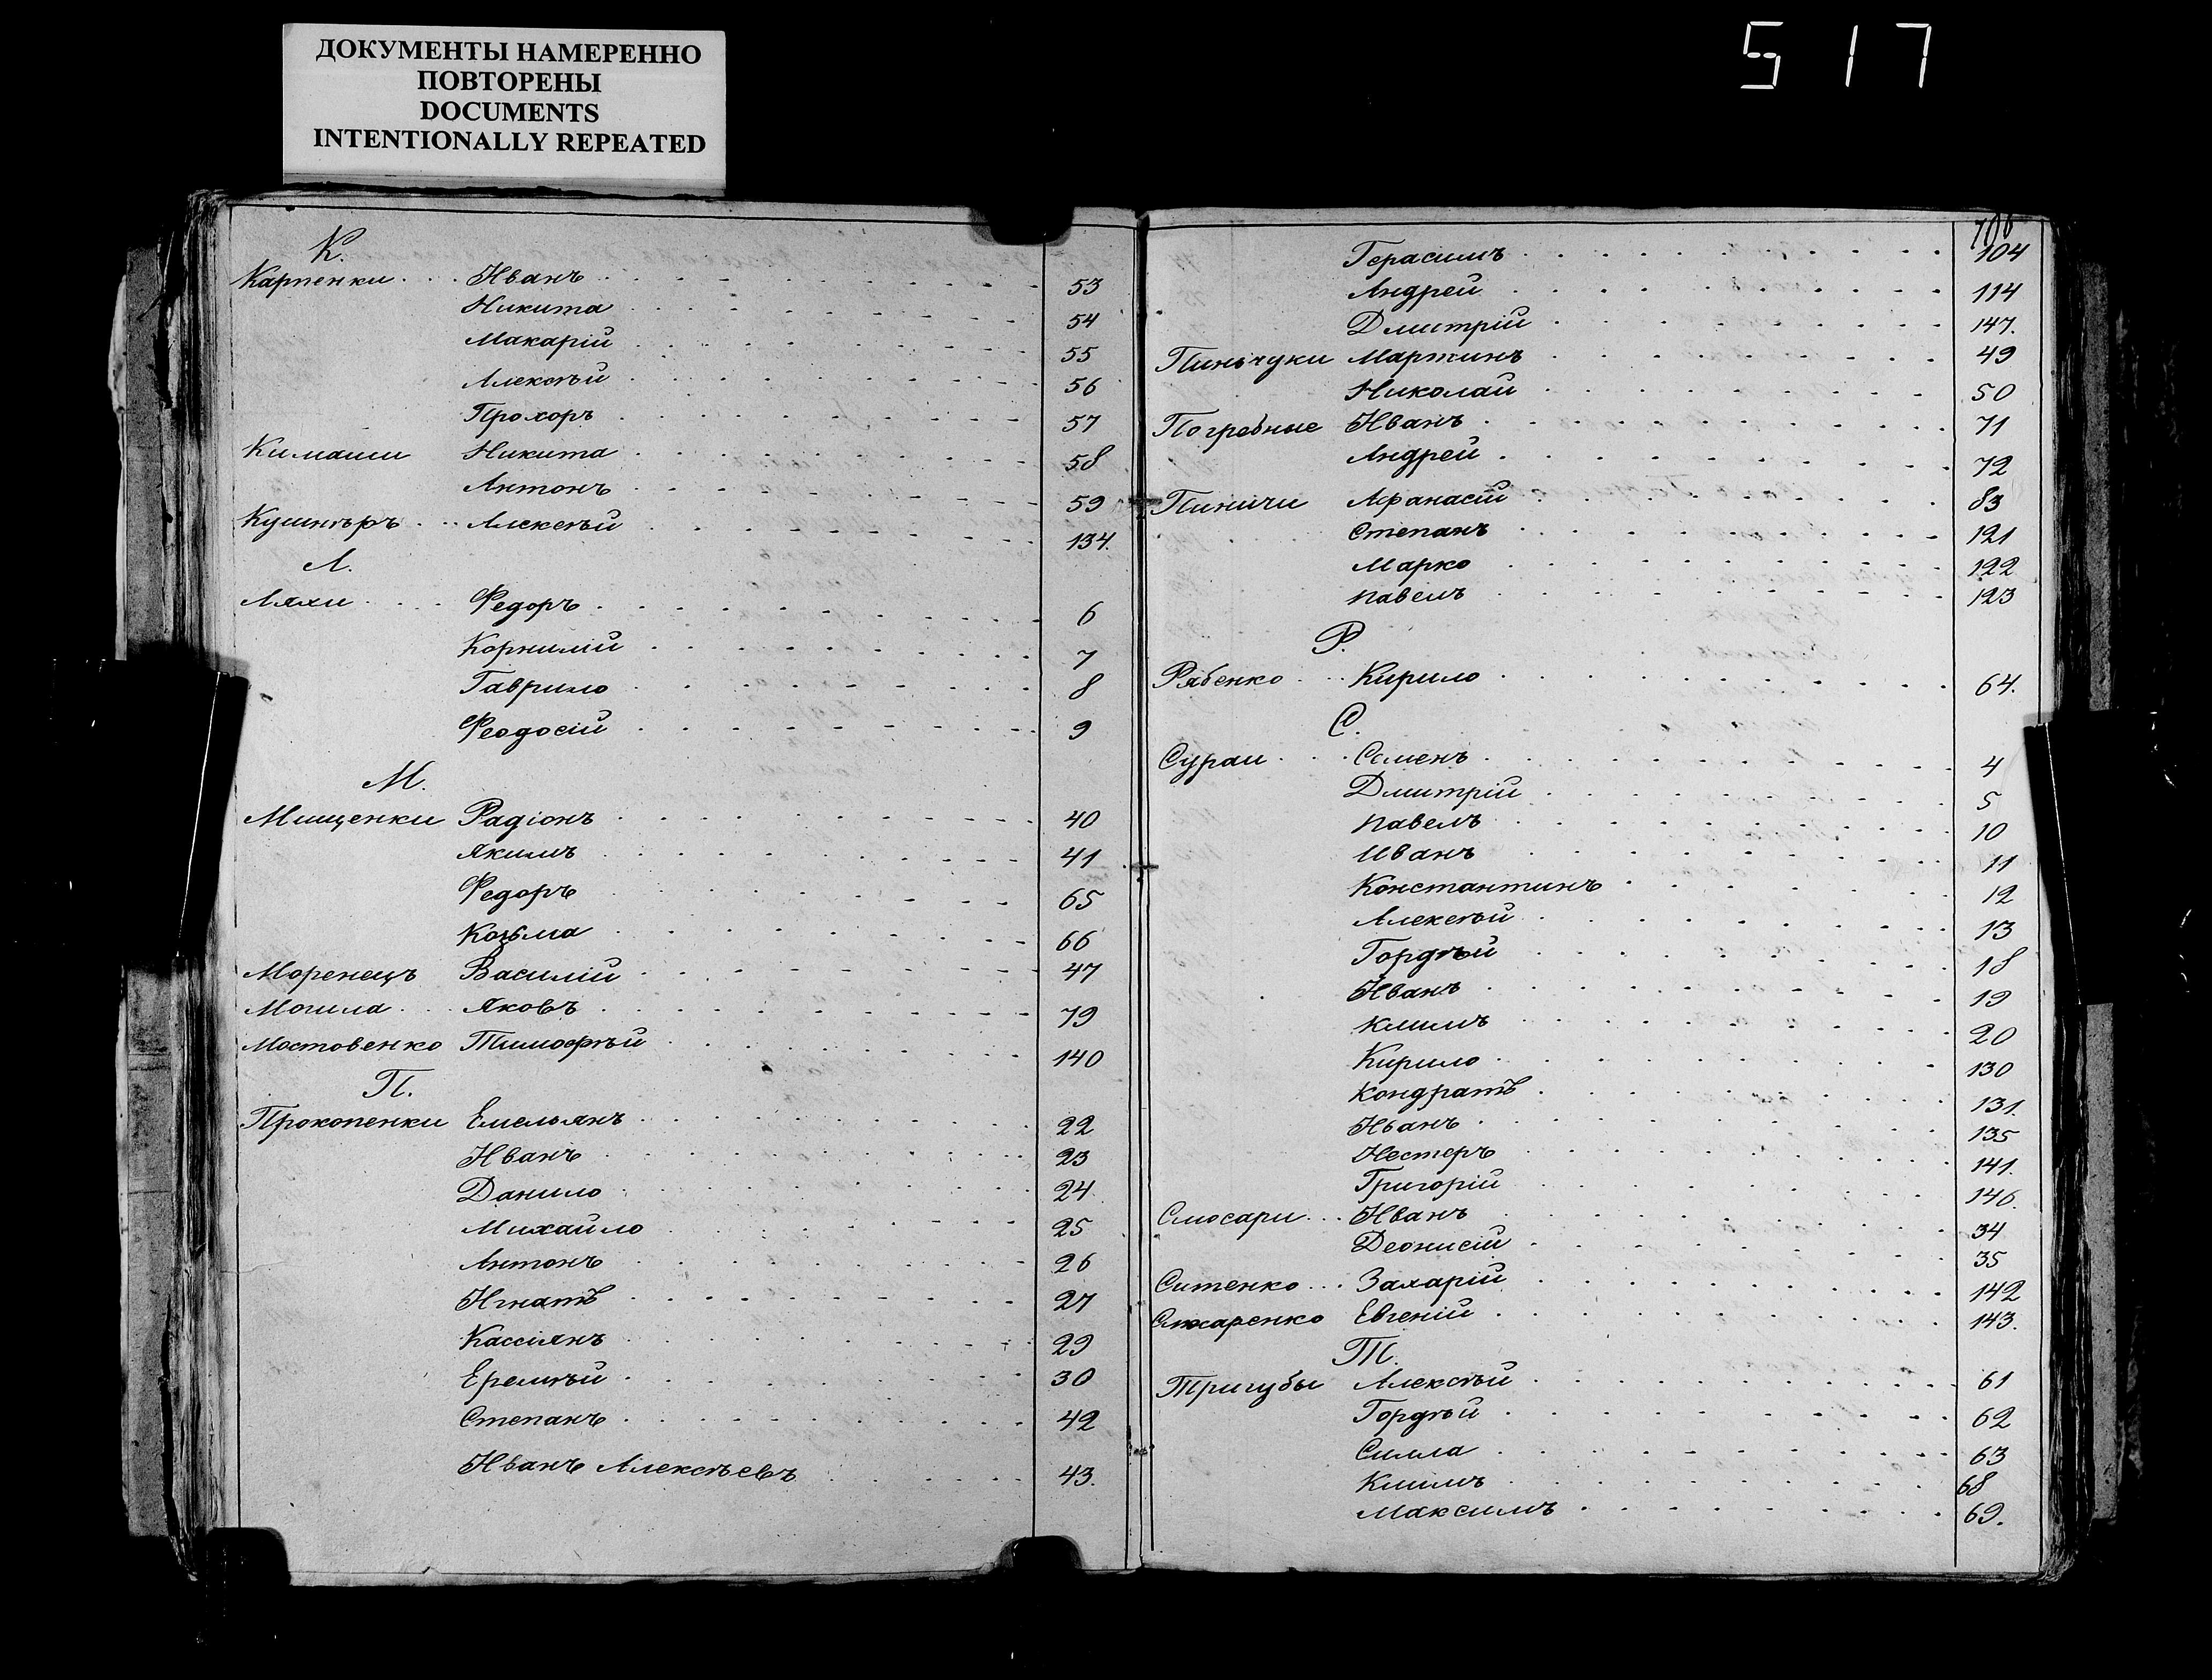 ДОКУМЕНТЫ НАМЕРЕННО
ПОВТОРЕНЫ
DOCUMENTS
INTENTIONALLY REPEATED
517
К.
Карпенки Иванъ 53
Никита 54
Макарій 55
Алексѣй 56
Прохоръ 57
Никита 58
Антонъ 59
Кушнѣръ Алексѣй 134.
Л.
Ляхи Федоръ 6
Корнилій 7
Гаврило 8
Феодосій 9
М.
Мищенки Радіонъ 40
Якимъ 41
Федоръ 65
Козьма 66
Моренецъ Василій 47
Могила Яковъ 79
Мостовенко Тимофѣй 140
П.
Прокопенки Емельянъ 22
Иванъ 23
Данило 24
Михайло 25
Антонъ 26
Игнатъ 27
Кассіянъ 29
Еремѣй 30
Степанъ 42
Иванъ Алексѣевъ 43.
706
Герасимъ 104
Андрей 114
Дмитрій 147.
Пиньчуки Мартинъ 49
Николай 50
Погребные Иванъ 71
Андрей 72
Пиничи Афанасій 83
Степанъ 121
Марко 122
Павелъ 123
Р.
Рябенко Кирило 64.
С.
Сураи Семенъ 4
Дмитрій 5
Павелъ 10
Иванъ 11
Константинъ 12
Алексѣй 13
Гордѣй 18
Иванъ 19
Климъ 20
Кирило 130
Кондратъ 131.
Иванъ 135
Нестеръ 141.
Григорій 146.
Слюсари Иванъ 34
Деонисій 35
Ситенко Захарій 142
Евгеній 143.
Т.
Тригубы Алексѣй 61
Гордѣй 62
Силла 63
Климъ 68
Максимъ 69.